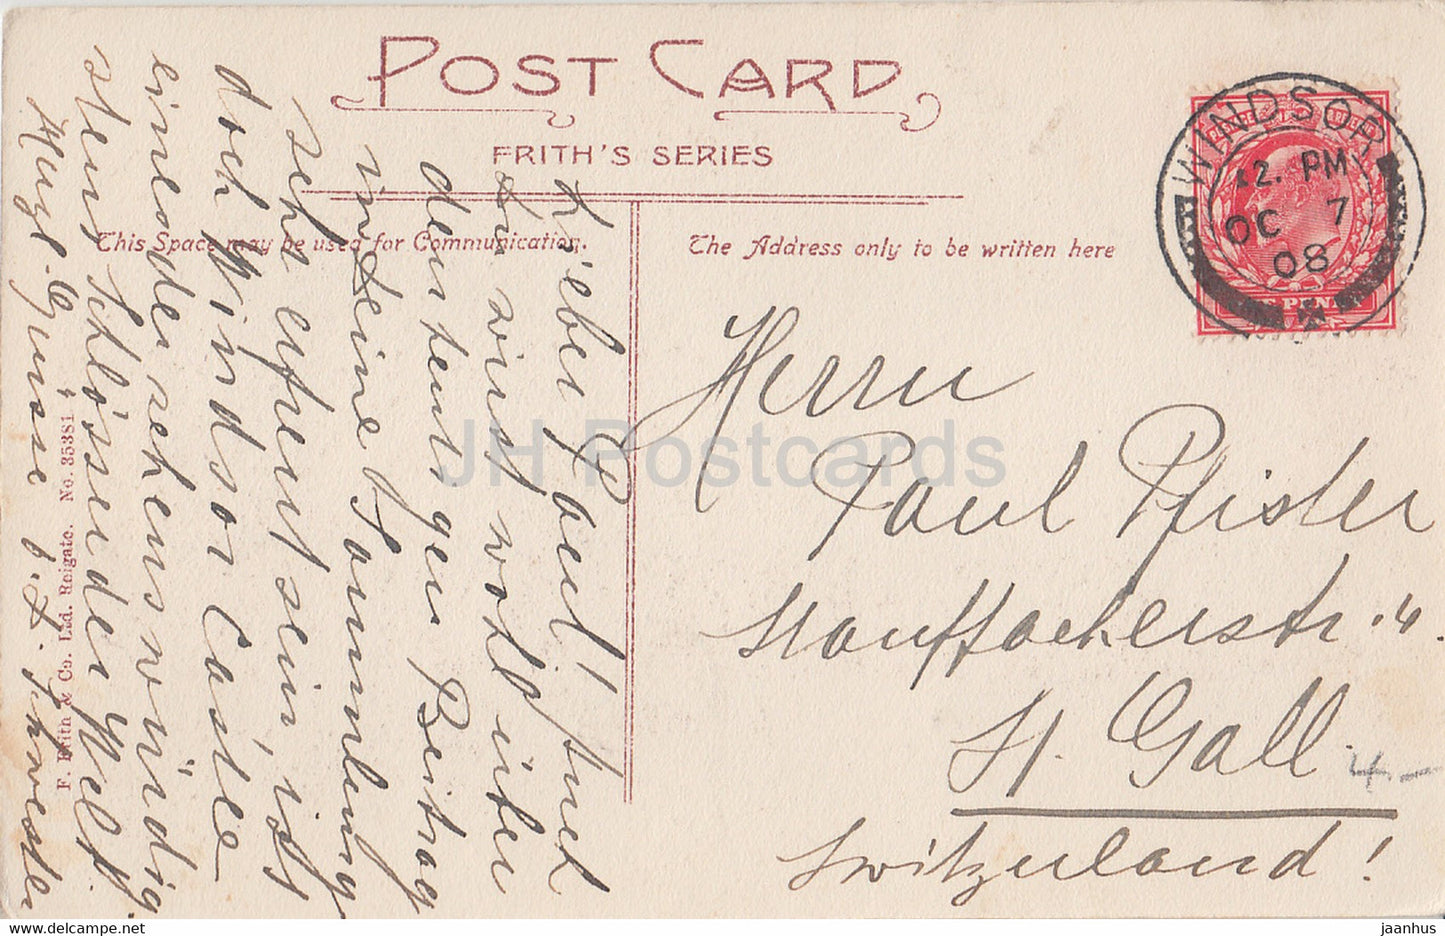 POST CARD
FRITH'S SERIES
This Space may be used for Communication.
The Address only to be written here
WINDSOR
12. PM
OC 7
08
Lieber Paul! Auch
Du wirst wohl über
den heutigen Beitrag
in Deine Sammlung
sehr erfreut sein, ist
doch Windsor Castle
eines der sehenswürdig
stens Schlösser der Welt.
Herzl. Grüsse
Schwester
Herrn
Paul Pfister
St. Gall.
4-
Switzerland!
F. Frith & Co. Ltd. Reigate. No. 35381
JH Postcards
jaanhus